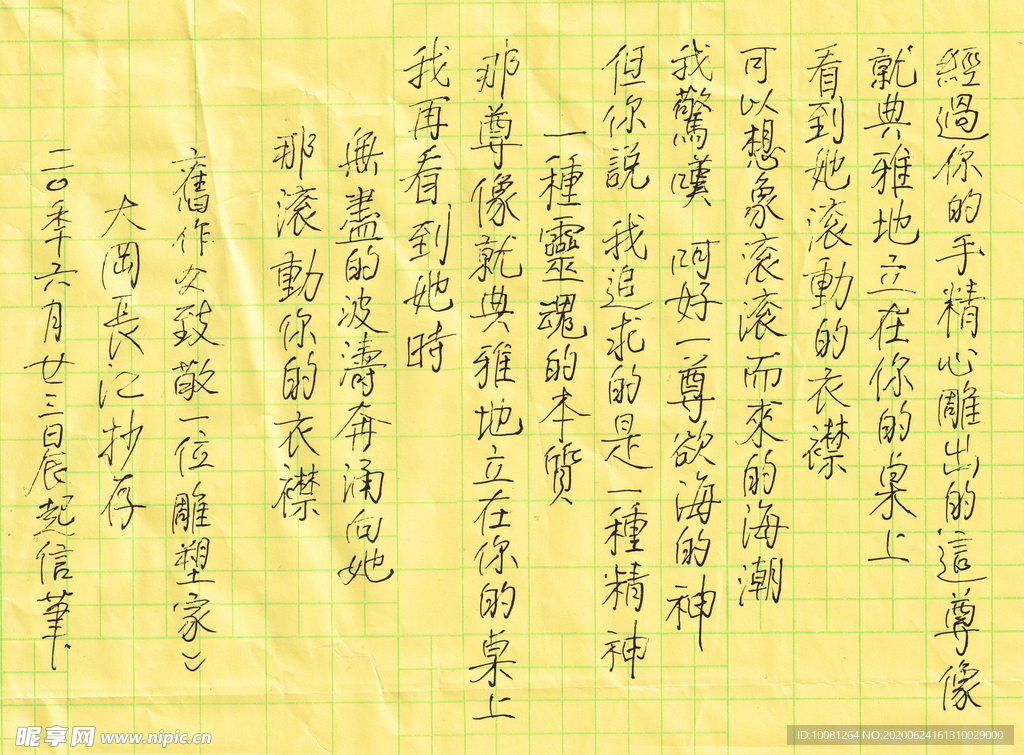 經過你的手精心雕出的這尊像
就典雅地立在你的桌上
看到她滾動的衣襟
可以想象滾滾而來的海潮
我驚嘆 啊好一尊欲海的神
但你說 我追求的是一種精神
一種靈魂的本質
那尊像就典雅地立在你的桌上
我再看到她時
無盡的波濤奔涌向她
那滾動你的衣襟
舊作《致敬一位雕塑家》
大岡長江抄存
二〇季六月廿三日晨起信筆
昵享网 www.nipic.cn
ID:10081264 NO:20200624161310029000